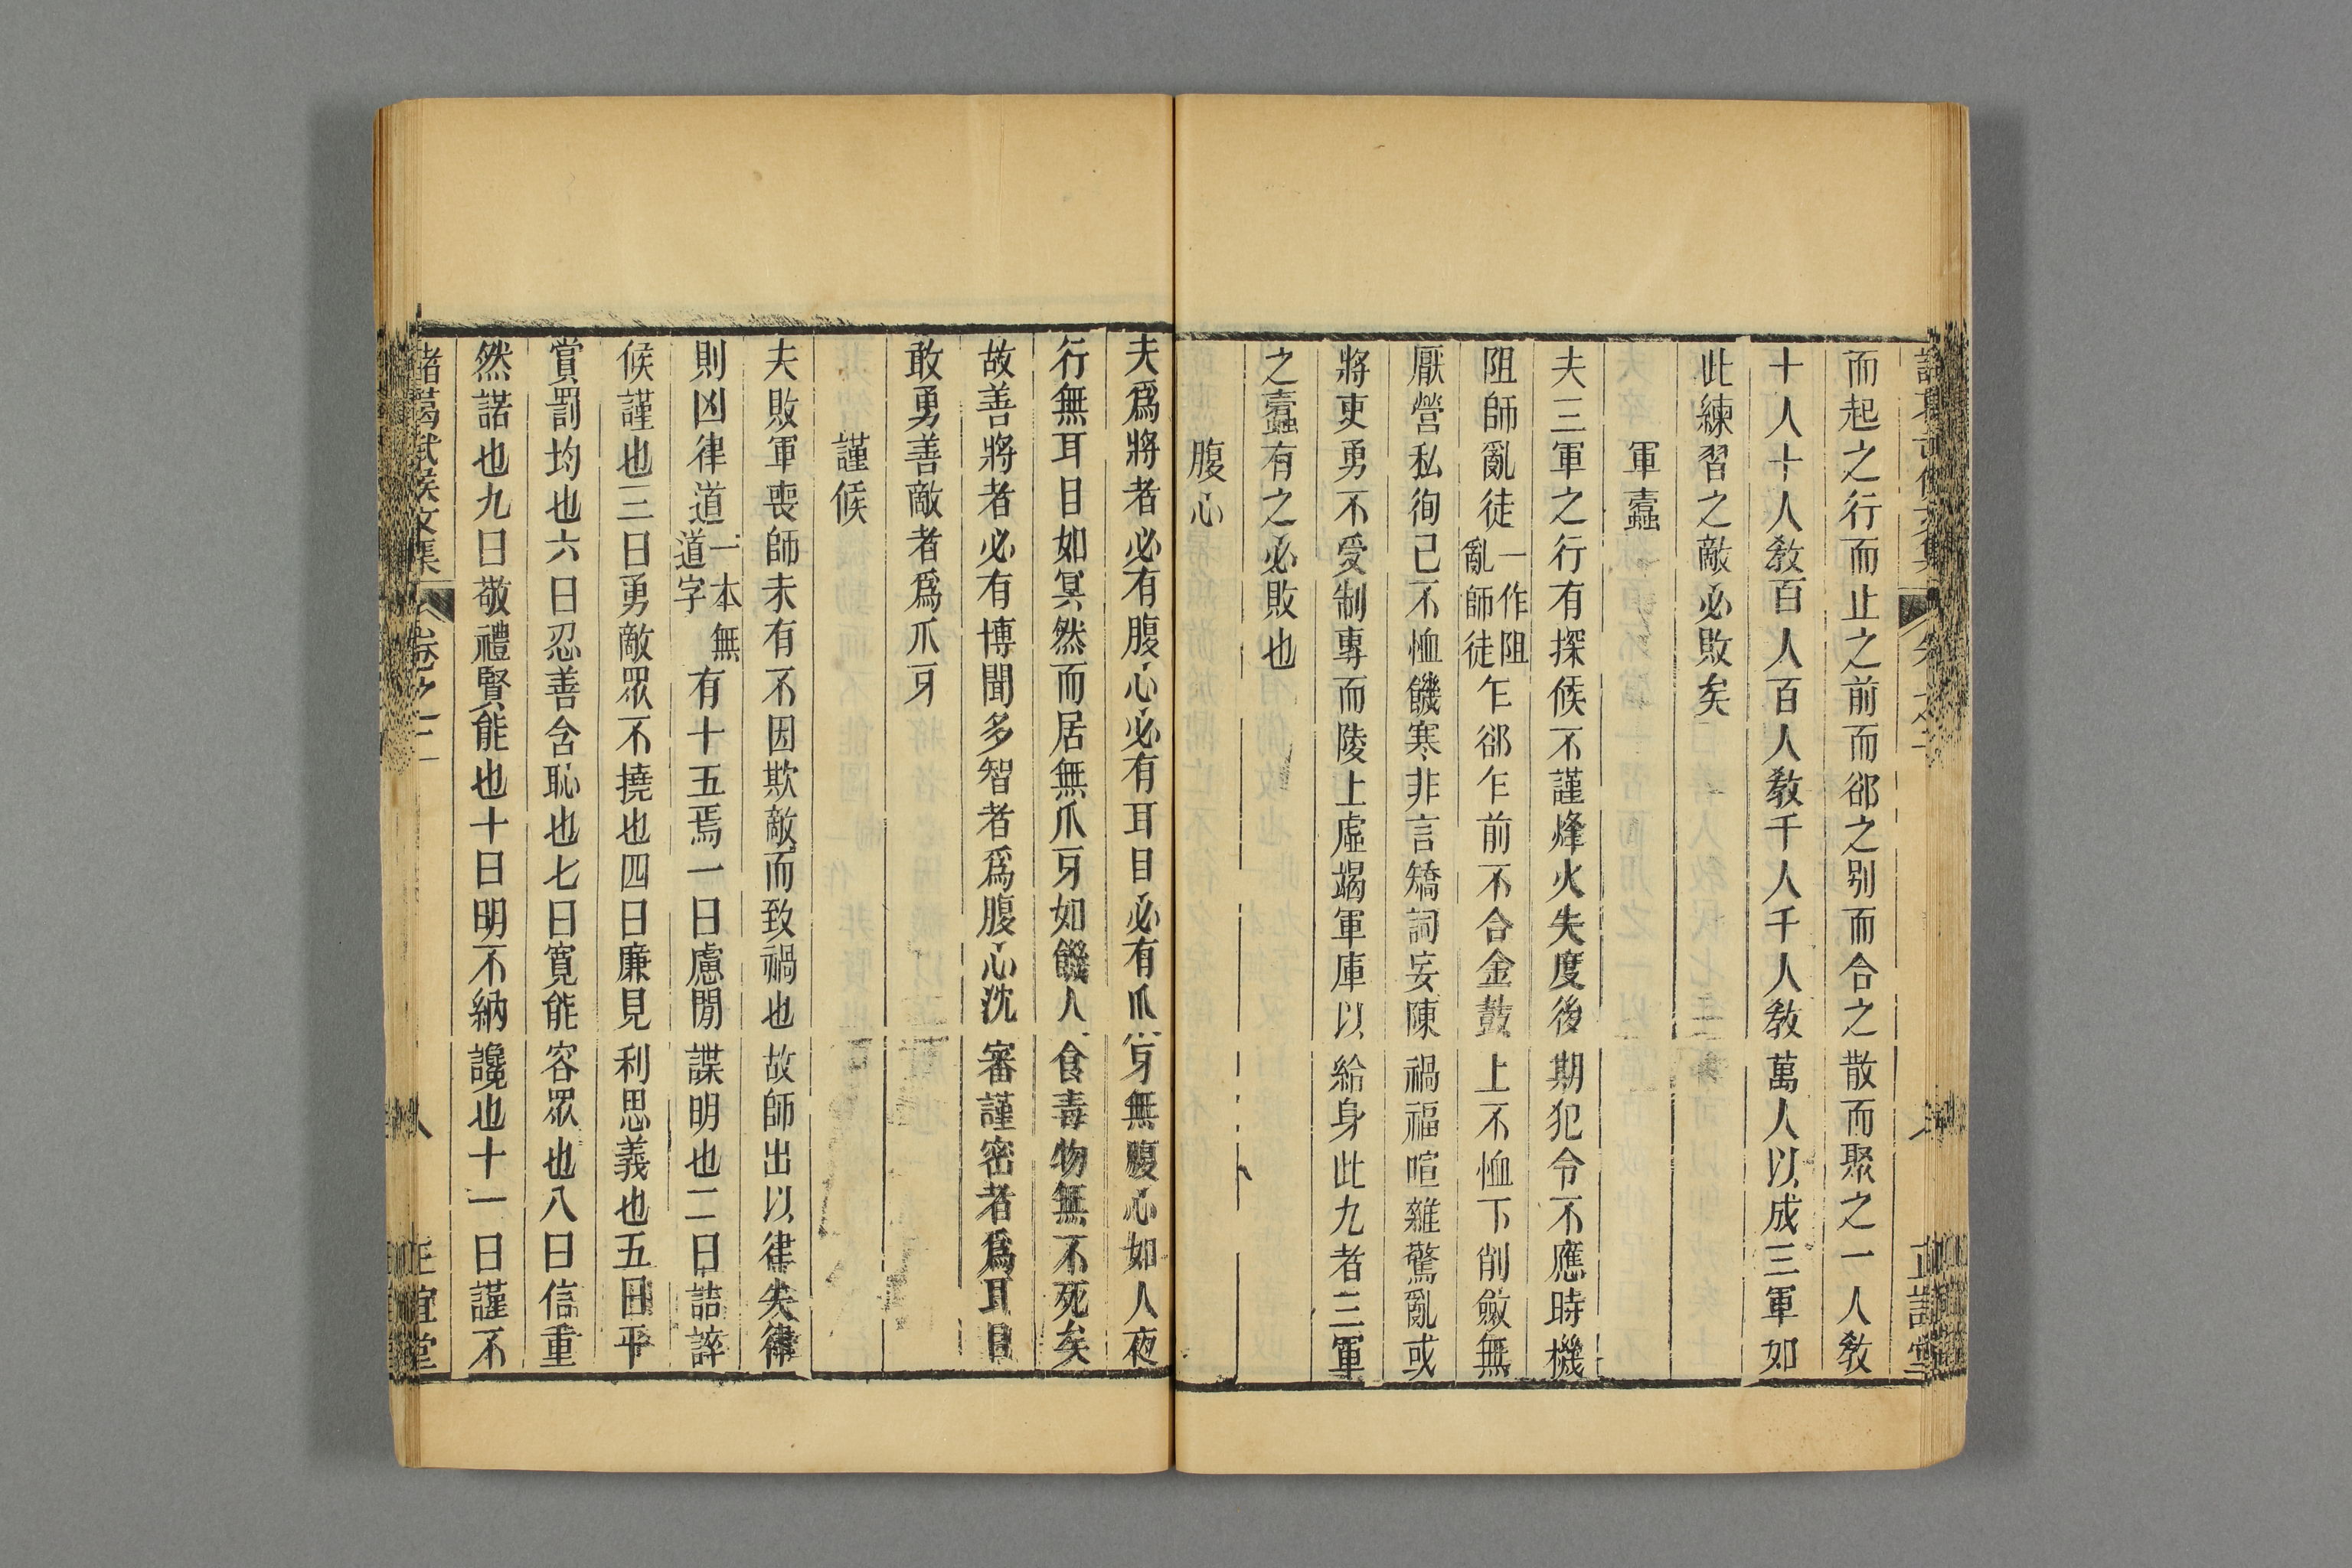 而起之行而止之前而郤之别而合之散而聚之一人敎
十人十人敎百人百人敎千人千人敎萬人以成三軍如
此練習之敵必敗矣
軍蠹
夫三軍之行有探候不謹烽火失度後期犯令不應時機
阻師亂徒一作阻亂師徒乍郤乍前不合金鼓上不恤下削斂無
厭營私徇己不恤饑寒非言矯詞妄陳禍福喧雜驚亂或
將吏勇不受制專而陵上虛竭軍庫以給身此九者三軍
之蠹有之必敗也
腹心
夫爲將者必有腹心必有耳目必有爪牙無腹心如人夜
行無耳目如冥然而居無爪牙如饑人食毒物無不死矣
故善將者必有博聞多智者爲腹心沈審謹密者爲耳目
敢勇善敵者爲爪牙
謹候
夫敗軍喪師未有不因欺敵而致禍也故師出以律失律
則凶律道一本無道字有十五焉一曰慮閒諜明也二曰詰誶
候謹也三曰勇敵眾不撓也四曰廉見利思義也五曰平
賞罰均也六曰忍善含恥也七曰寬能容眾也八曰信重
然諾也九曰敬禮賢能也十曰明不納讒也十一曰謹不
諸葛武侯文集 卷之二 八 正誼堂